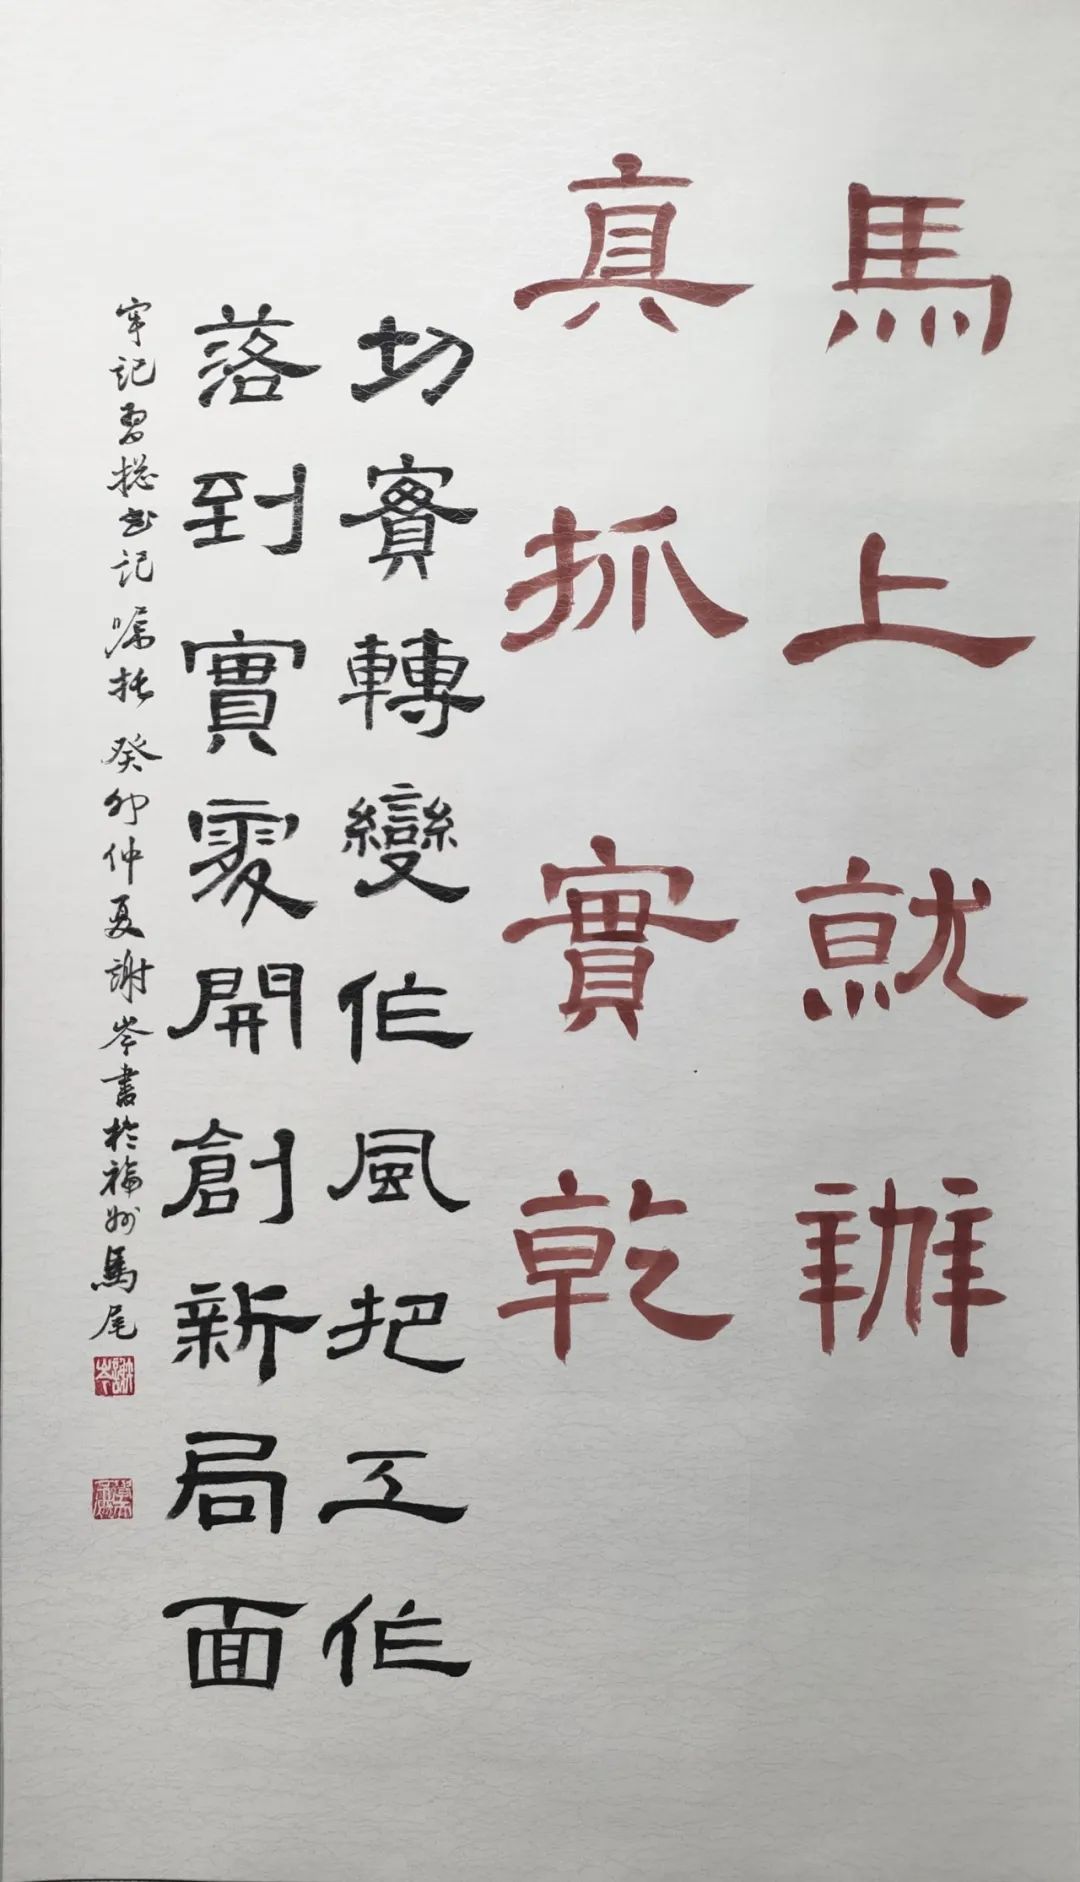 馬上就辦
真抓實乾
切實轉變作風把工作
落到實處開創新局面
牢記習總书記嘱托 癸卯仲夏謝岑書於福州馬尾
謝岑